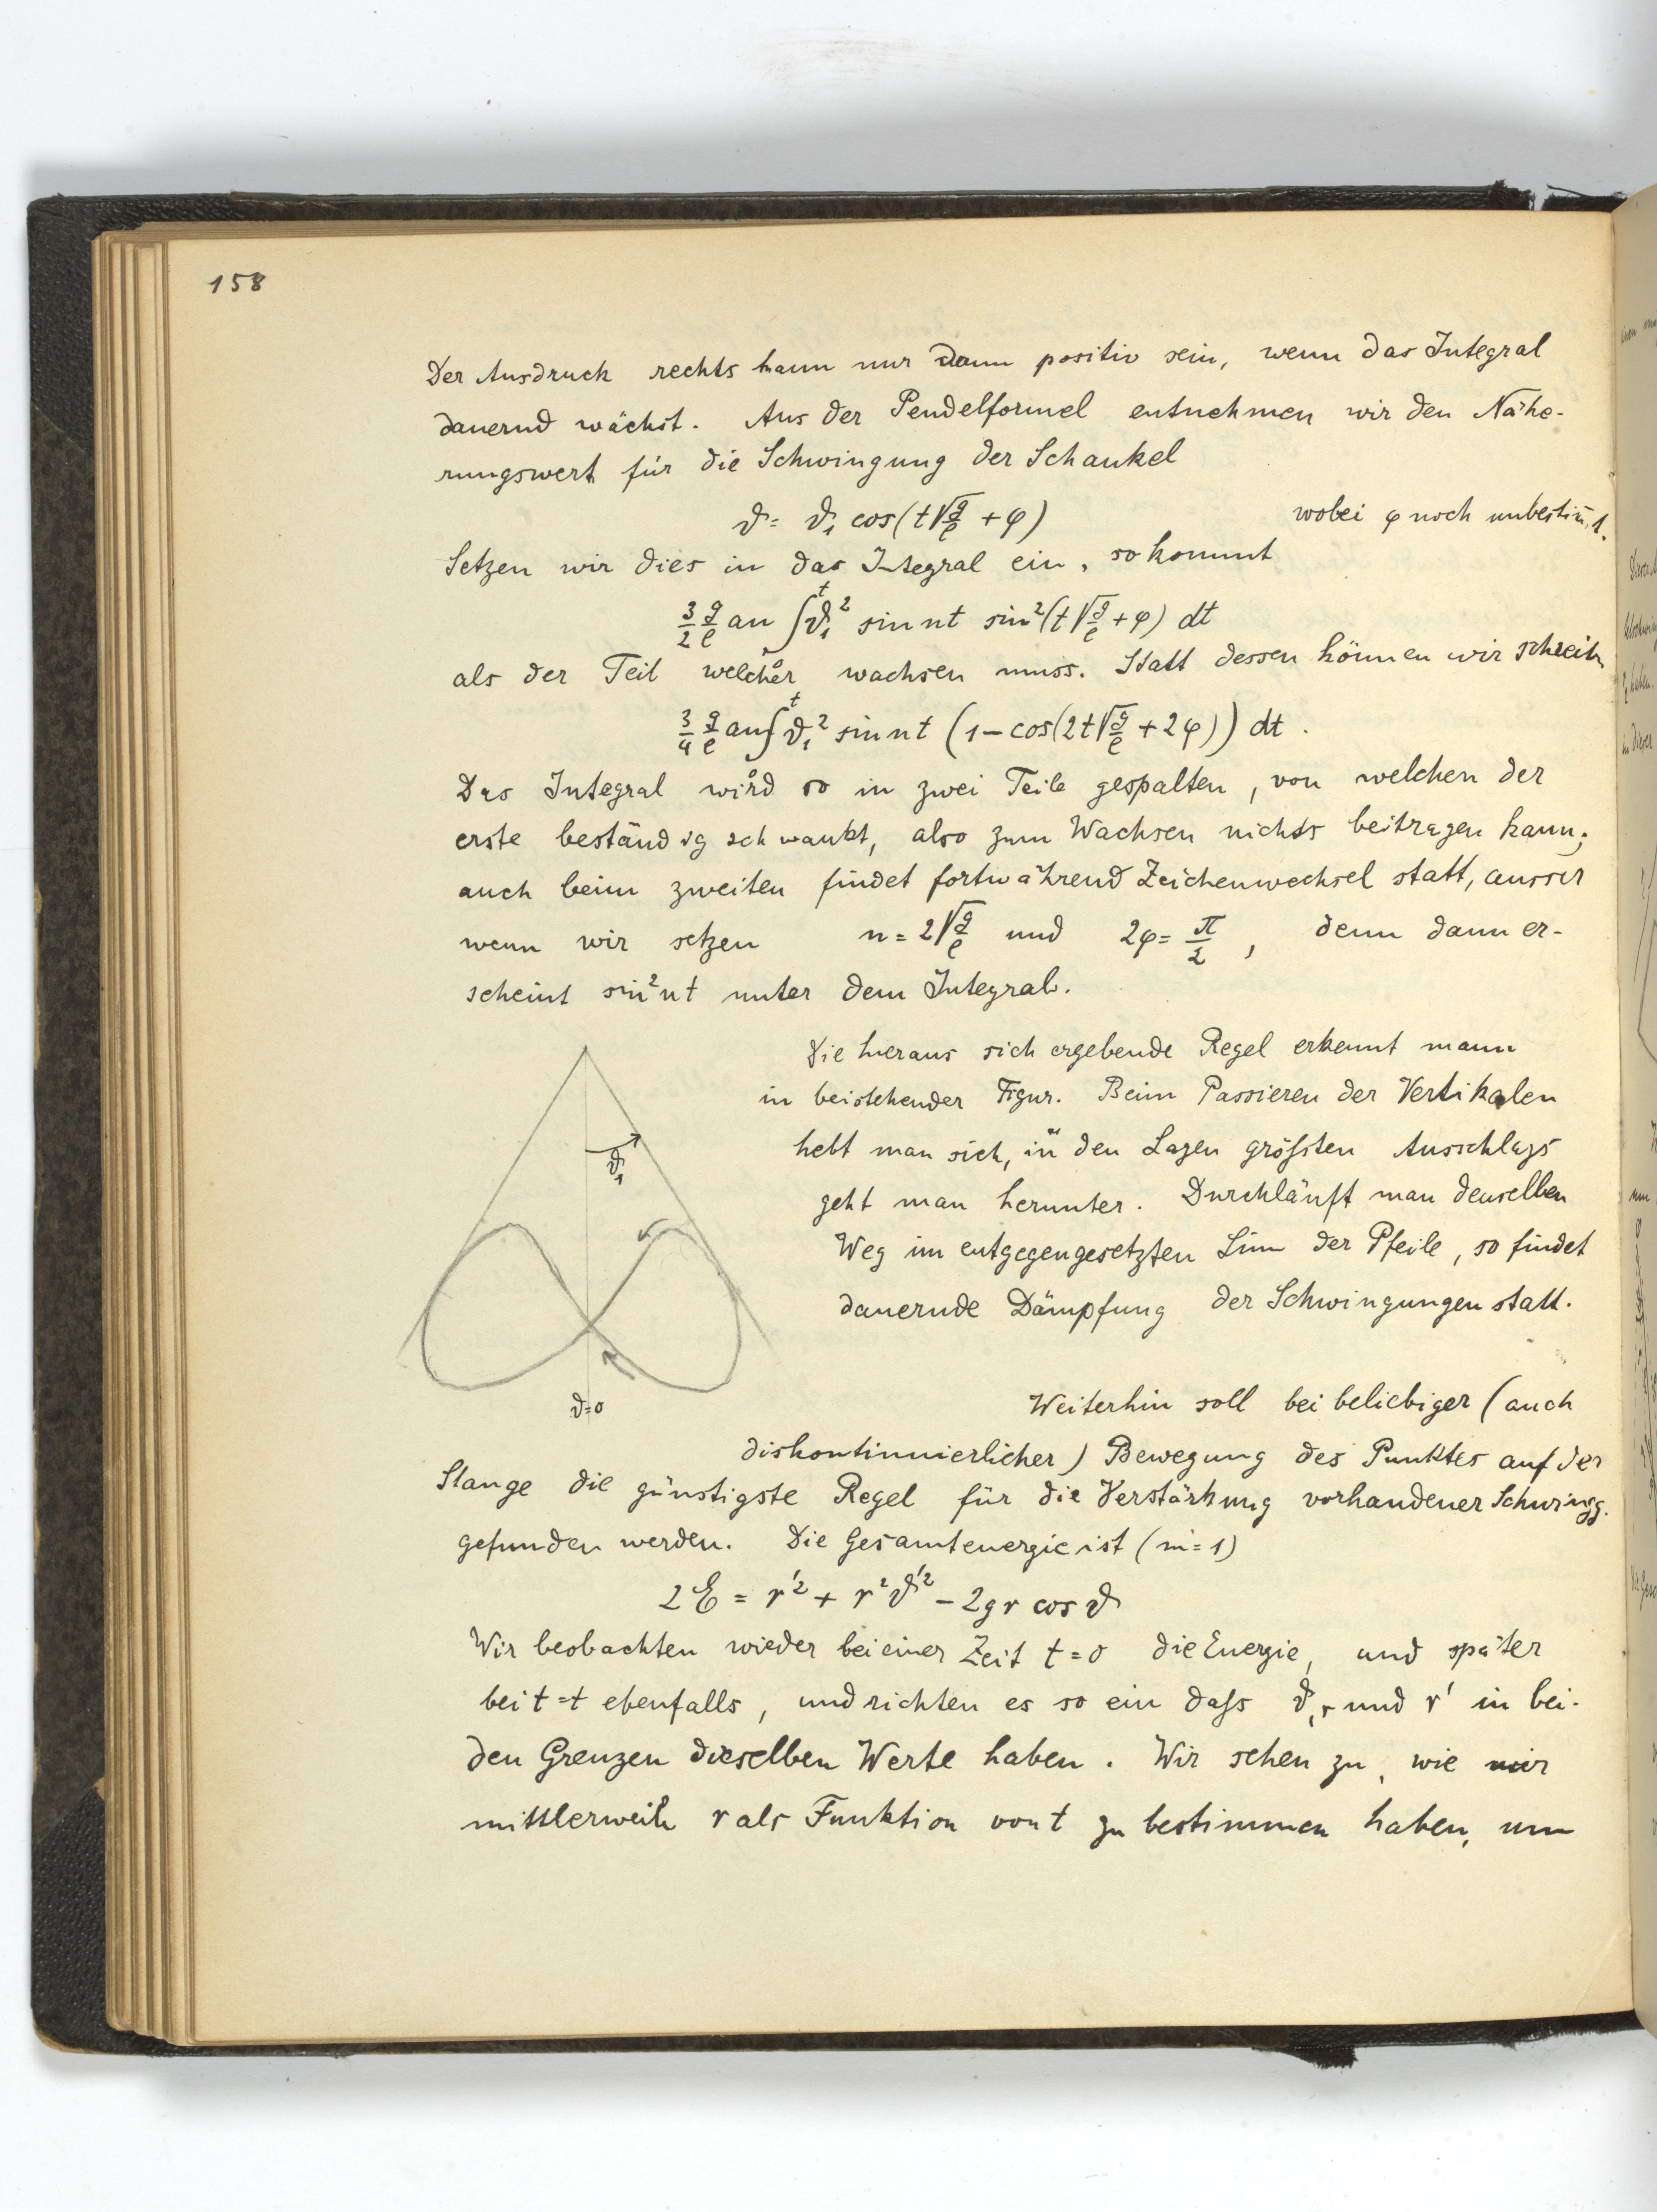 158
Der Ausdruck rechts kann nur dann positiv sein, wenn das Integral
dauernd wächst. Aus der Pendelformel entnehmen wir den Nähe-
rungswert für die Schwingung der Schaukel
ϑ = ϑ₁ cos(t√(g/ℓ) + φ) wobei φ noch unbestim̄t.
Setzen wir dies in das Integral ein, so kommt
3/2 g/ℓ an ∫₀ᵗ ϑ₁² sin nt sin²(t√(g/ℓ) + φ) dt
als der Teil welcher wachsen muss. Statt dessen können wir schreib.
3/4 g/ℓ an ∫₀ᵗ ϑ₁² sin nt (1 – cos(2t√(g/ℓ) + 2φ)) dt.
Das Integral wird so in zwei Teile gespalten, von welchen der
erste beständig schwankt, also zum Wachsen nichts beitragen kann;
auch beim zweiten findet fortwährend Zeichenwechsel statt, ausser
wenn wir setzen n = 2√(g/ℓ) und 2φ = π/2, denn dann er-
scheint sin² nt unter dem Integral.
Die hieraus sich ergebende Regel erkennt mann
in beistehender Figur. Beim Passieren der Vertikalen
hebt man sich, in den Lagen größten Ausschlags
geht man herunter. Durchläuft man denselben
Weg im entgegengesetzten Sinn der Pfeile, so findet
dauernde Dämpfung der Schwingungen statt.
ϑ₁
ϑ=0
Weiterhin soll bei beliebiger (auch
diskontinuierlicher) Bewegung des Punktes auf der
Stange die günstigste Regel für die Verstärkung vorhandener Schwingg.
gefunden werden. Die Gesamtenergie ist (m=1)
2ℰ = r'² + r²ϑ'² – 2gr cos ϑ
Wir beobachten wieder bei einer Zeit t=0 die Energie, und später
bei t=t ebenfalls, und richten es so ein daß ϑ, r und r' in bei-
den Grenzen dieselben Werte haben. Wir sehen zu, wie wir
mittlerweile r als Funktion von t zu bestimmen haben, um